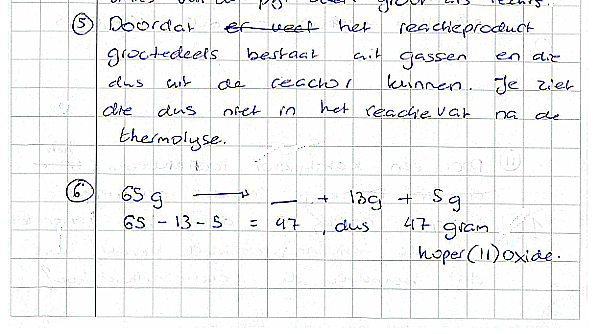 ⑤ Doordat er veel het reactieproduct
grootedeels bestaat uit gassen en die
dus uit de reactor kunnen. Je ziet
die dus niet in het reactievat na de
thermolyse.
⑥ 65 g ⟶ __ + 13g + 5 g
65 - 13 - 5 = 47, dus 47 gram
koper(II)oxide.